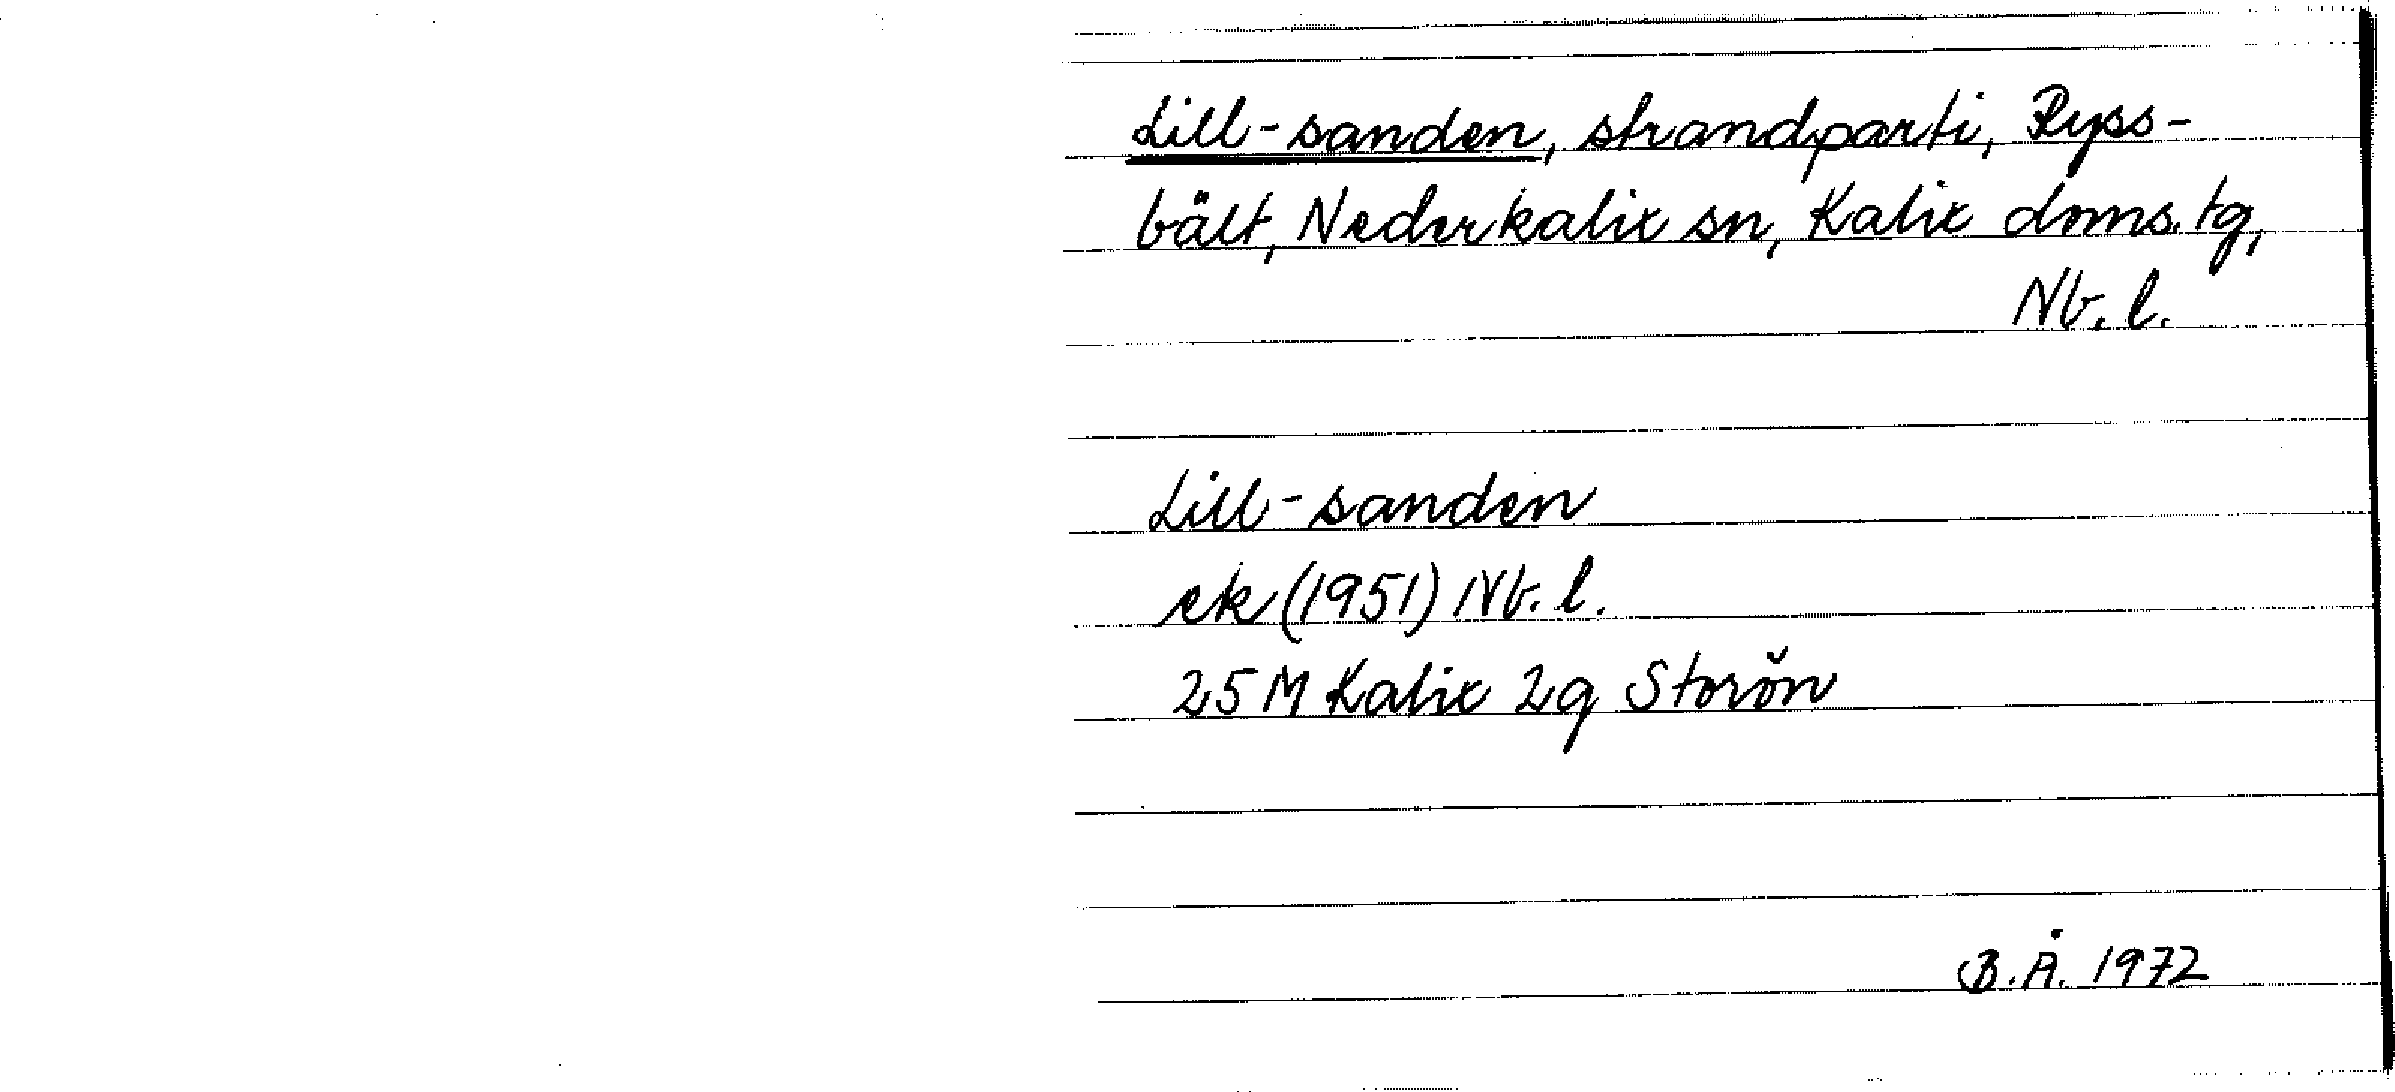 Lill-sanden, strandparti, Ryss-
bält, Nederkalix sn, Kalix doms. tg,
Nb. l.
Lill-sanden
ek (1951) Nb. l.
25 M Kalix 2g Storön
B.Å. 1972